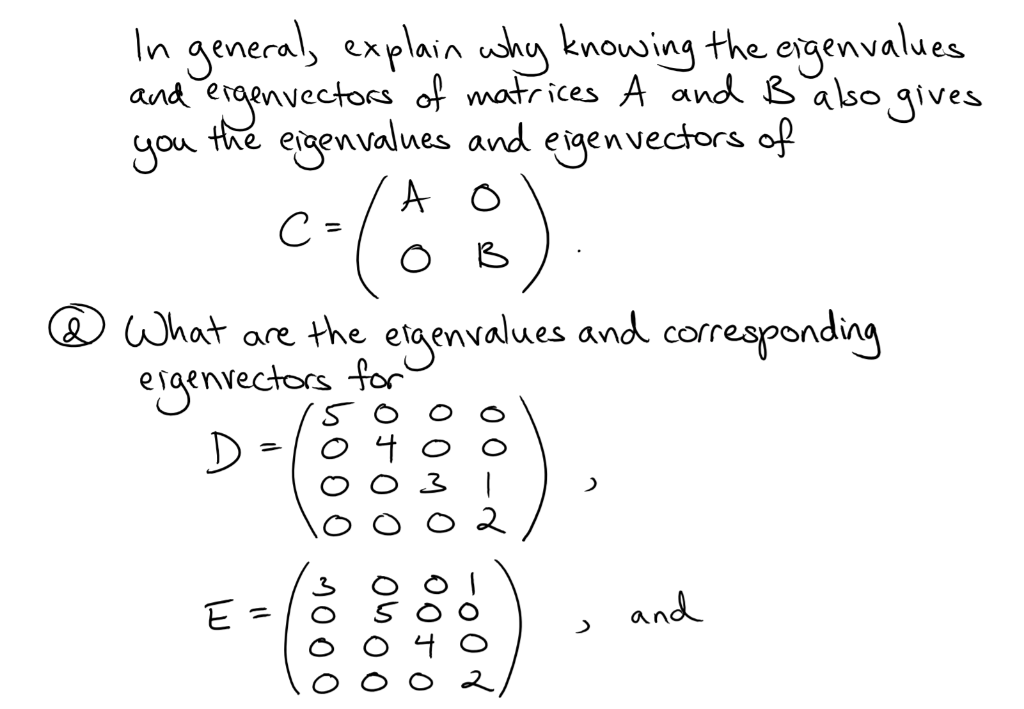 In general, explain why knowing the eigenvalues
and eigenvectors of matrices A and B also gives
you the eigenvalues and eigenvectors of
C = ( A 0
0 B ) .
② What are the eigenvalues and corresponding
eigenvectors for
D = ( 5 0 0 0
0 4 0 0
0 0 3 1
0 0 0 2 ) ,
E = ( 3 0 0 1
0 5 0 0
0 0 4 0
0 0 0 2 ) , and